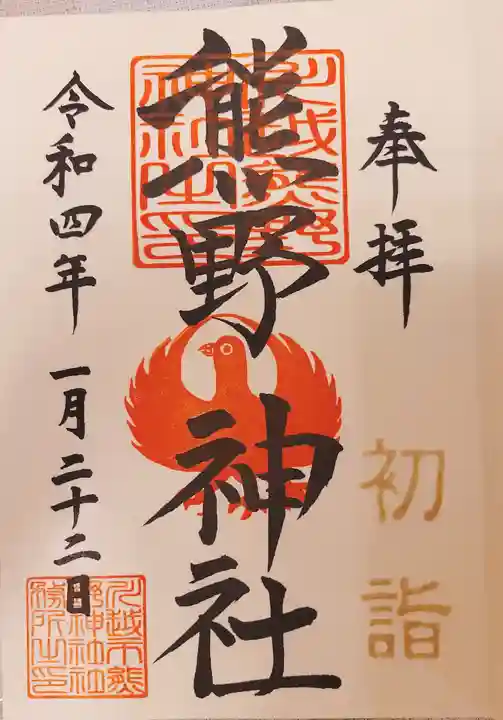 奉拝
初詣
川越熊野
神社之印
熊野神社
令和四年 一月二十二日
川越市熊
野神社社
務所之印